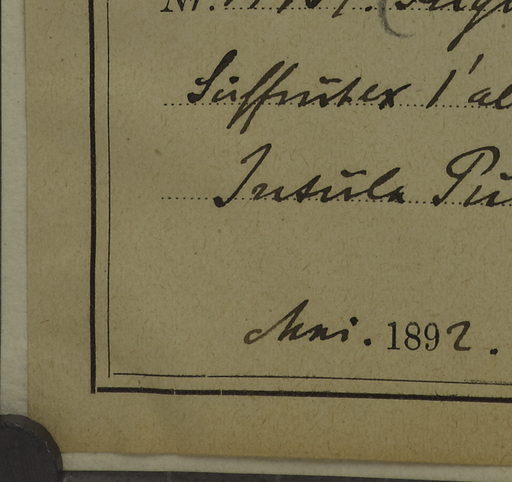 Nr.
Suffrutex 1' al
Insula Pu
Mai. 1892.